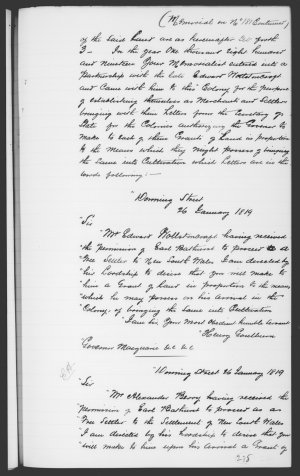 (Memorial on No 181 Continued)
of the said Land are as hereinafter set forth
3 - In the year One thousand Eight hundred
and nineteen Your Memorialist entered into a
Partnership with the late Edward Wollstonecraft
and Came with him to this Colony for the purpose
of establishing themselves as Merchants and Settlers
bringing with them Letters from the Secretary of
State for the Colonies authorizing the Governor to
make to Each of them Grants of Land in proportion
to the Means which they might possess of bringing
the same into Cultivation which Letters are in the
words following :-
"Downing Street
26 January 1819
"Sir
"Mr Edward Wollstonecraft having received
the permission of Earl Bathurst to proceed as a
Free Settler to New South Wales I am directed by
his Lordship to desire that you will make to
him a Grant of Land in proportion to the means
which he may possess on his arrival in the
Colony, of bringing the same into Cultivation
"I am Sir Your Most Obedient humble Servant
"Henry Goulburn
Governor Macquarie &c &c &c
"Downing Street 26 January 1819
"Sir
"Mr Alexander Berry having received the
permission of Earl Bathurst to proceed as a
Free Settler to the Settlement of New South Wales
I am directed by his Lordship to desire that you
will make to him upon his Arrival a Grant of